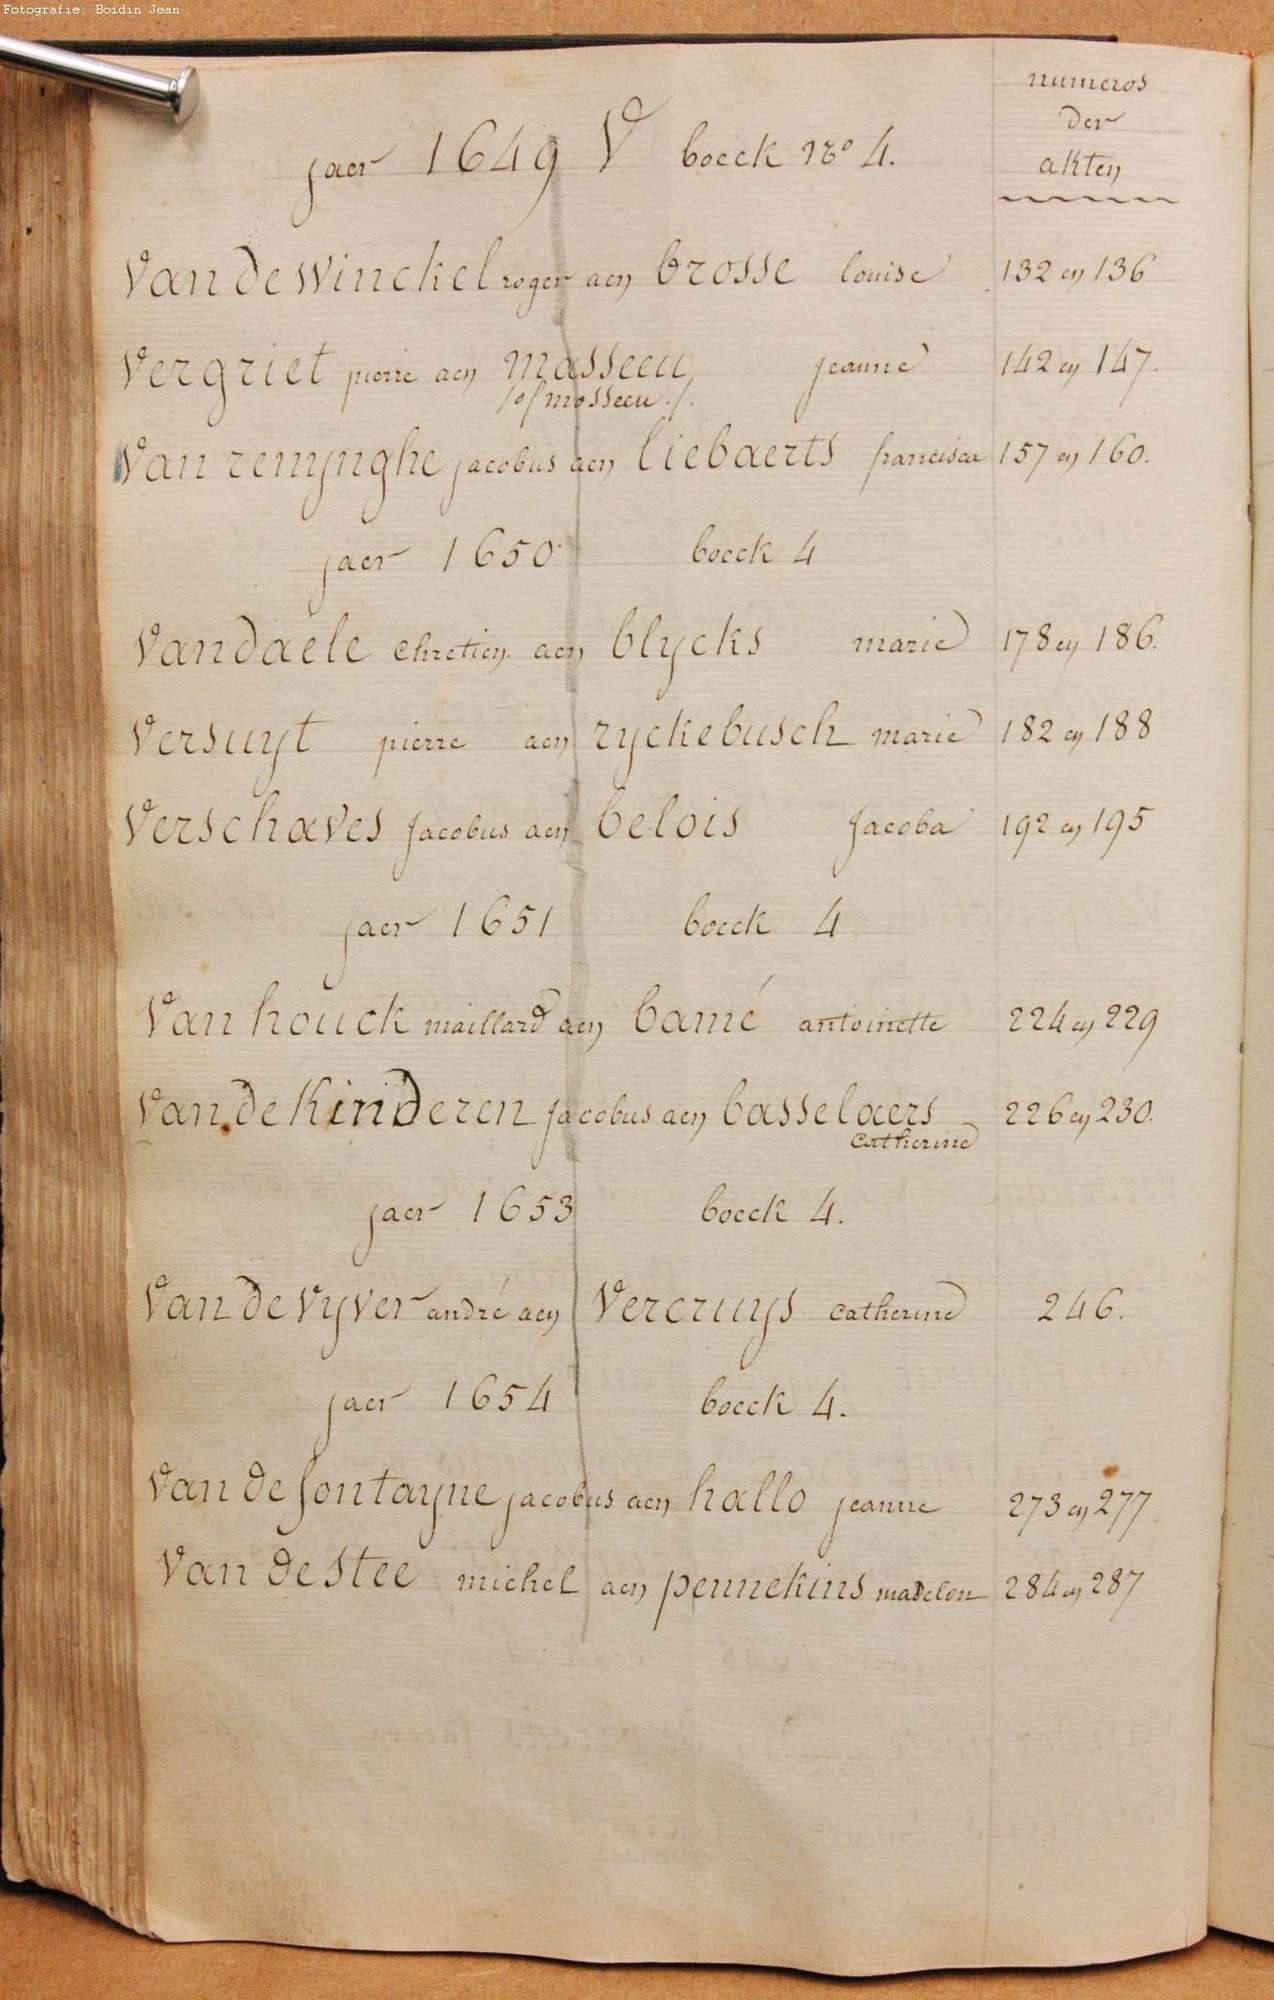 Fotografie: Boidin Jean
numeros
der
akten
jaer 1649 V boeck no 4.
Van de Winckel roger aen brosse louise 132 en 136
Vergriet pierre aen masseeu jeanne 142 en 147.
/of mosseeu./.
Van remynghe jacobus aen liebaerts francisca 157 en 160.
jaer 1650 boeck 4
Vandaele chretien aen blycks marie 178 en 186.
Versuyt pierre aen ryckebusch marie 182 en 188
Verschaves jacobus aen belois jacoba 192 en 195
jaer 1651 boeck 4
Van houck maillard aen bamé antoinette 224 en 229
Van de Kinderen jacobus aen basselaers 226 en 230.
catherine
jaer 1653 boeck 4.
Van de Vyver andré aen Vercruys catherine 246.
jaer 1654 boeck 4.
Van de fontayne jacobus aen hallo jeanne 273 en 277
Van de stee michel aen pennekins madelon 284 en 287